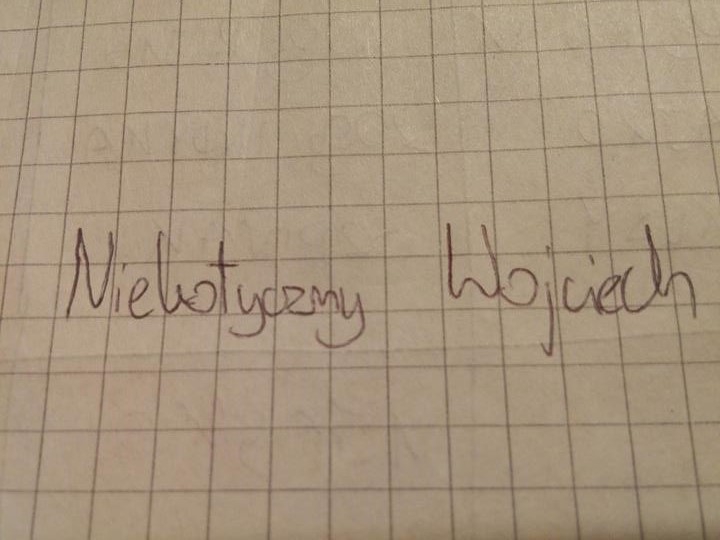 Niekotyczny Wojciech